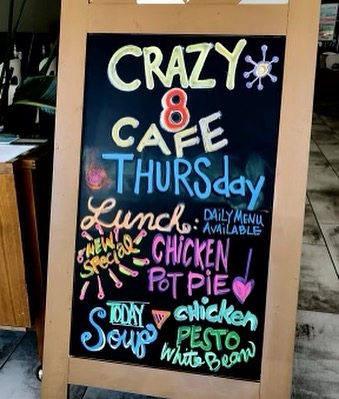 CRAZY
8
CAFE
THURSday
Lunch: DAILY MENU
AVAILABLE
"NEW!
Special" CHICKEN
POT PIE
TODAY
Soup chicken
PESTO
White Bean